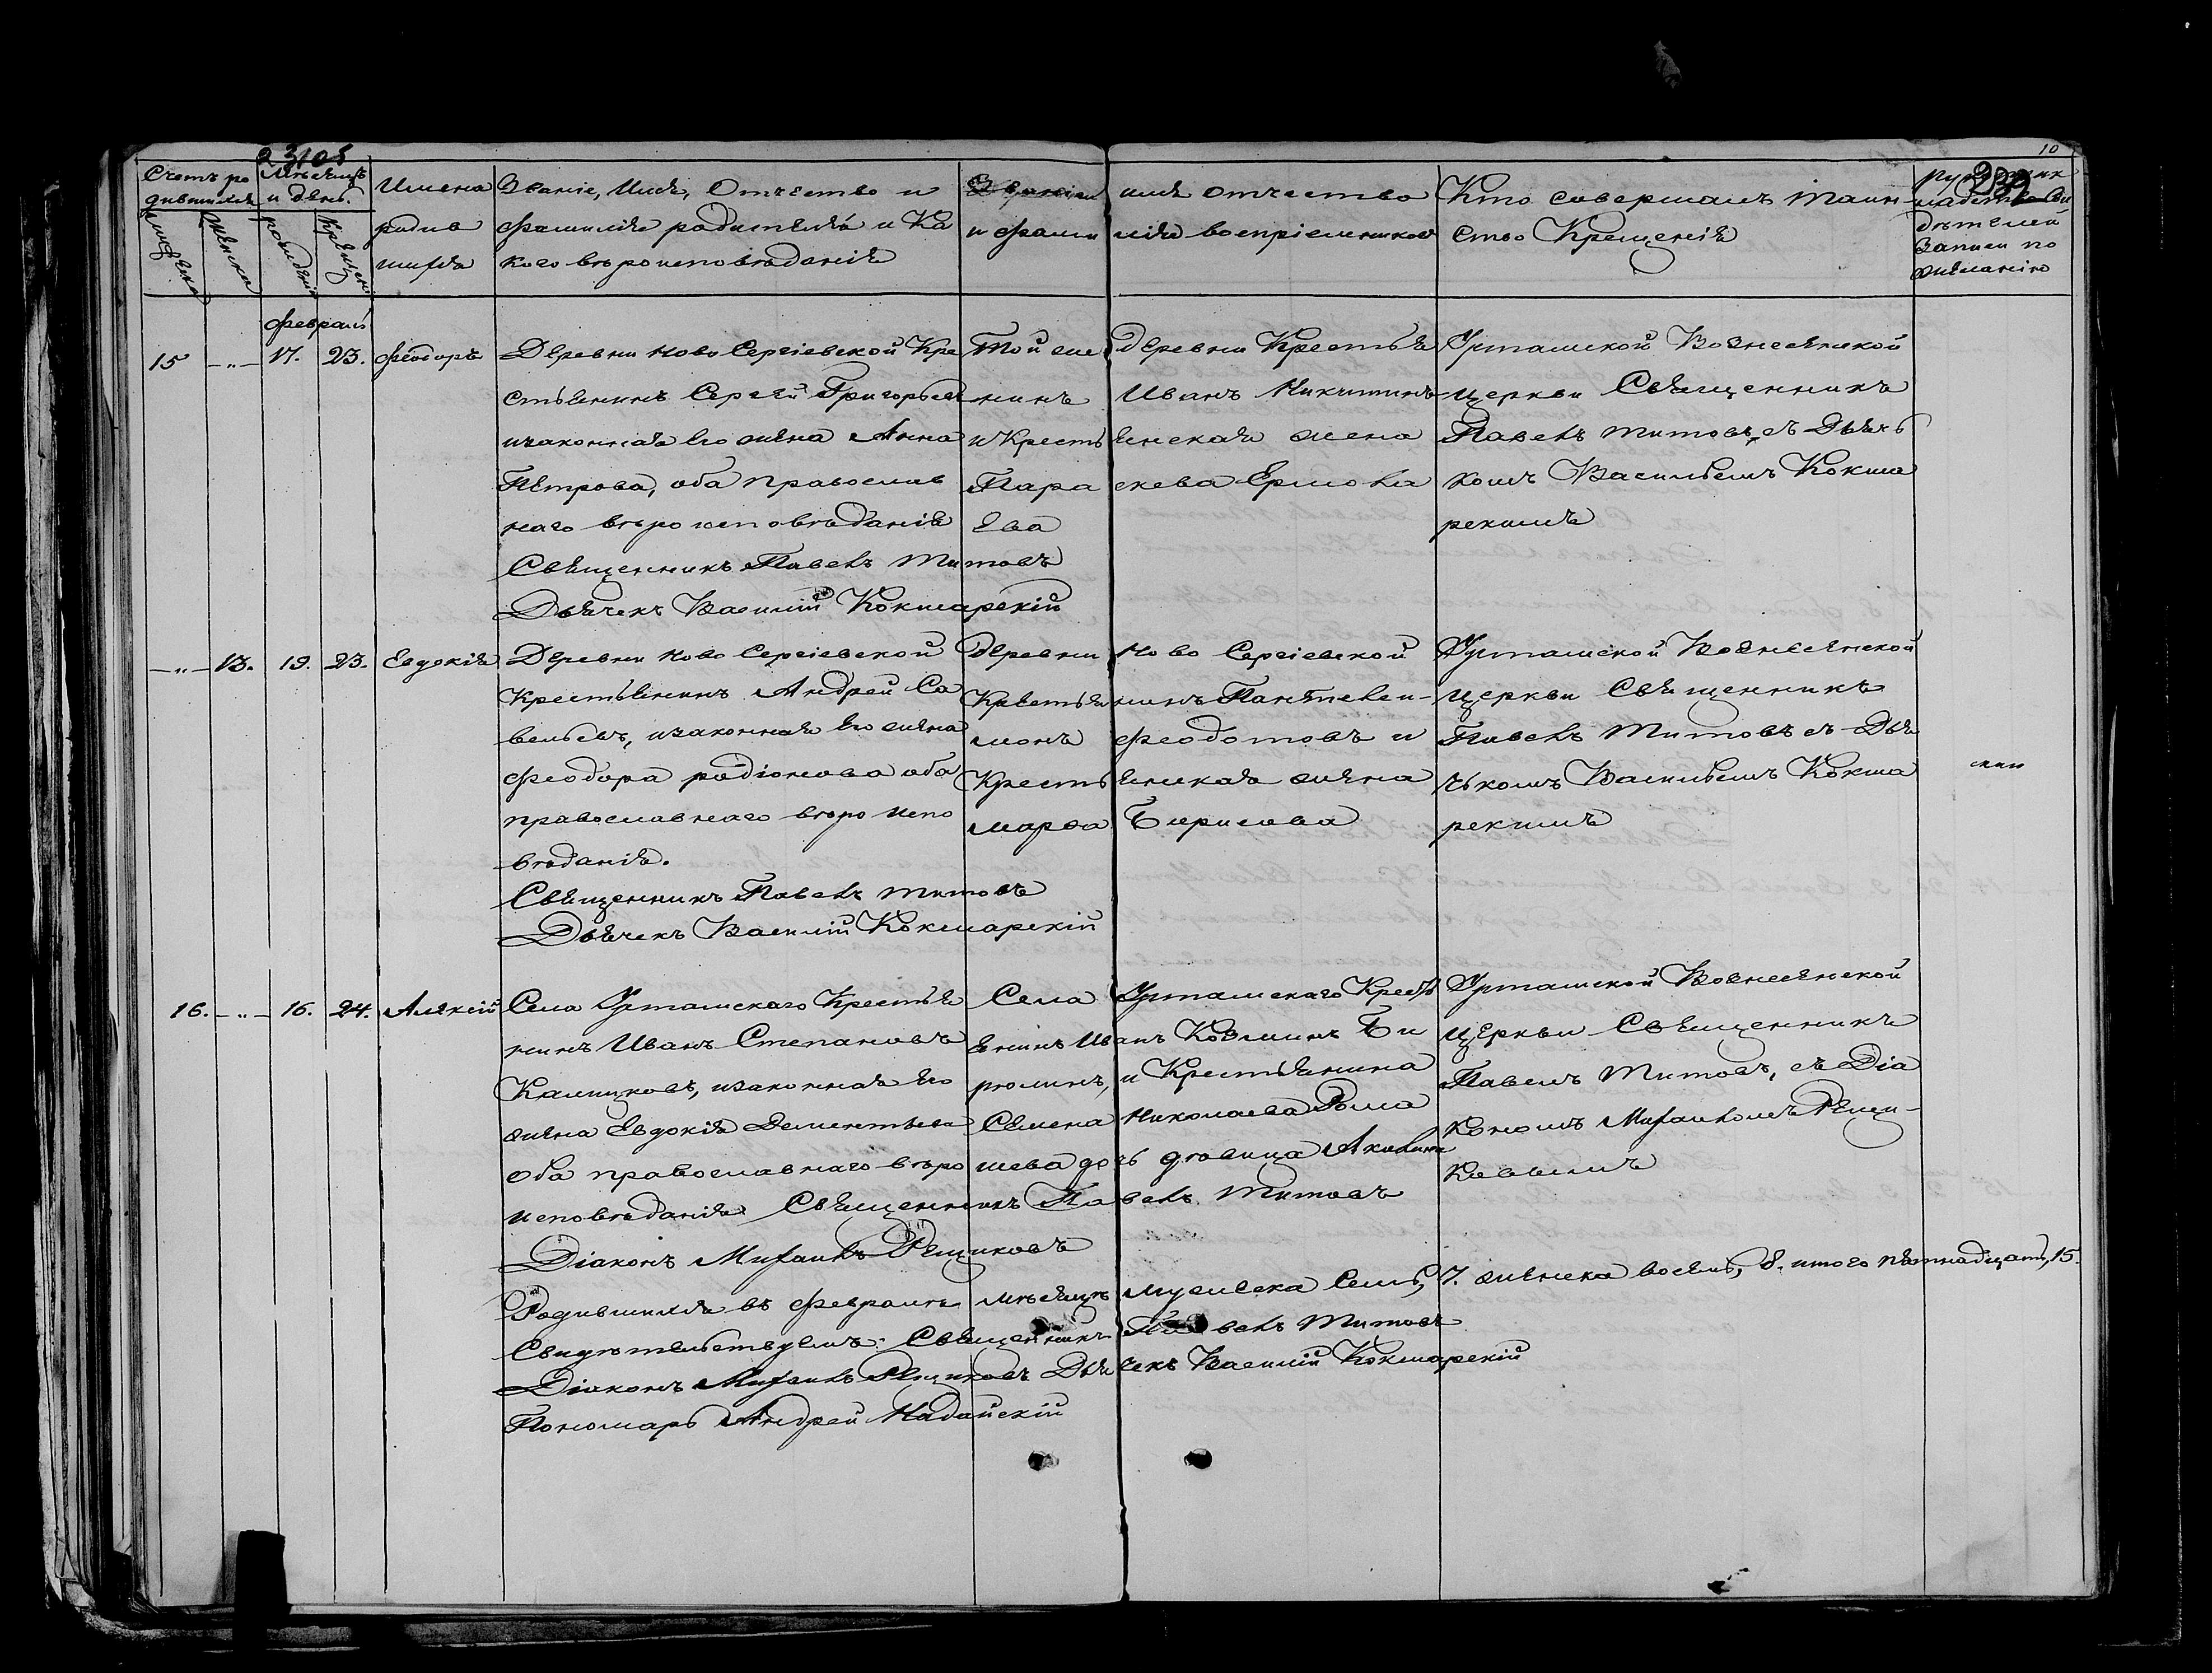 10
Счетъ ро
дившихся
Мѣсяцъ
и день.
Мужеска
Женска
рожденія
Крещенія
Имена
родив
шихся
Званіе, Имя, Отчество и
Фамилія родителей и Ка
кого вѣроисповѣданія
Званіе имя отчество
и фами лія воспріемниковъ
Кто совершалъ таин
ство Крещенія
дѣтелей
Записи по
желанію
февраль
15 17. 23. Феодоръ
Деревни Ново Сергіевской Кре
стьянинъ Сергей Григорьевъ
изаконная Его жена Анна
Петрова, оба православ
наго вѣроисповѣданія
Священникъ Павелъ Титовъ
Дьячекъ Василій Кокшарскій
Той же деревни Крестья
нинъ Иванъ Никитинъ
и Кресть янская жена
Пара скева Ермола
ева
Урташской Вознесенской
церкви Священникъ
Павелъ Титовъ, съ Дьяч
комъ Васильемъ Кокша
рскимъ
13. 19. 23. Евдокія
Деревни Ново Сергіевской
Крестьянинъ Андрей Са
вельевъ, изаконная Его жена
Феодора родіонова оба
православнаго вѣроиспо
вѣданія.
Священникъ Павелъ Титовъ
Дьячекъ Василій Кокшарскій
Деревни Ново Сергіевской
Крестья нинъ Пантелей-
монъ Феодотовъ и
Кресть янская жена
марѳа Борисова
Урташской Вознесенской
церкви Священникъ
Павелъ Титовъ съ Дья
чькомъ Васильемъ Кокша
рскимъ
16. 16. 24. Алексій
Села Урташскаго Крестья
нинъ Иванъ Степановъ
Калицковъ, изаконная Его
жена Евдокія Дементьева
Оба православнаго вѣро
исповѣданія Священникъ Павелъ Титовъ
Діаконъ Михаилъ Рещиковъ
Села Урташскаго Кресть
янинъ Иванъ Козминъ Би
рюлинъ, и Крестьянина
Семена Николаева Рома
шева дочь дѣвица Акилина
Урташской Вознесенской
Церкви Священникъ
Павелъ Титовъ, съ Діа
кономъ Михаиломъ Рещи-
ковымъ
Родившихся въ Февралѣ мѣсяцѣ мужеска Семь, 7. женска восемь, 8. итого пятнадцать, 15.
Свидѣтельствуемъ: Священникъ Павелъ Титовъ
Діаконъ Михаилъ Рещиковъ Дьячекъ Василій Кокшарскій
Пономарь Андрей Надайскій